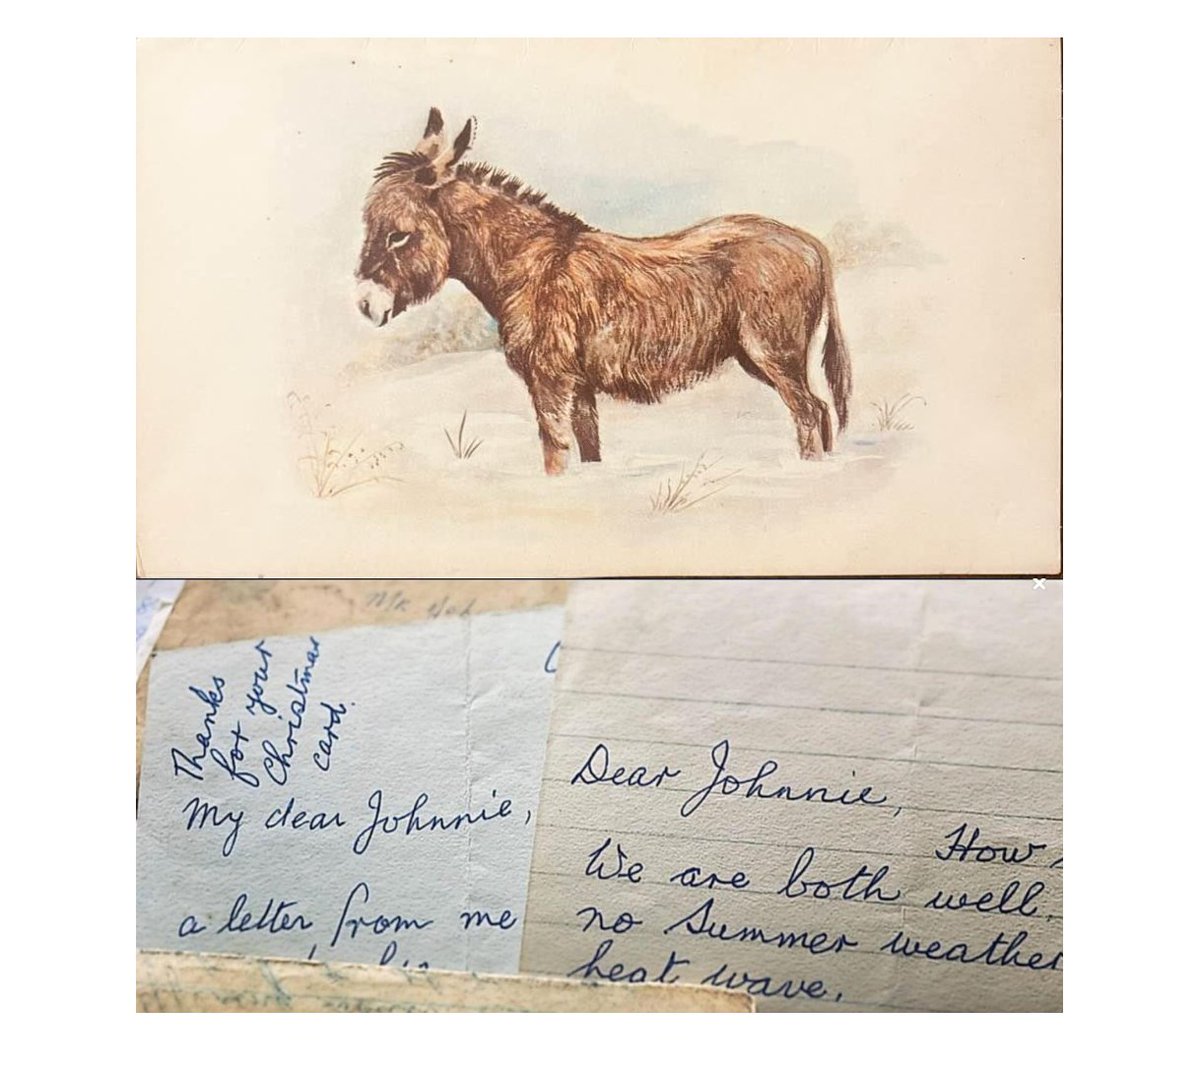 Thanks
for your
Christmas
card.
My dear Johnnie,
a letter from me
Dear Johnnie,
How
We are both well.
no Summer weather
heat wave.